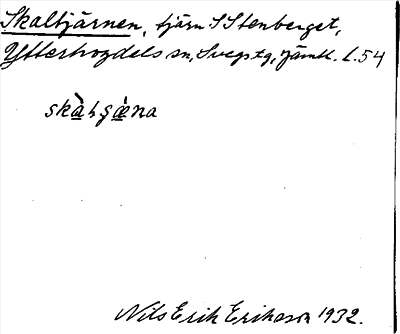 Skaltjärnen, tjärn S Stenberget,
Ytterhogdals sn, Svegs tg, Jämtl. L.54
skàlʂæ̀na
Nils Erik Erikson 1932.